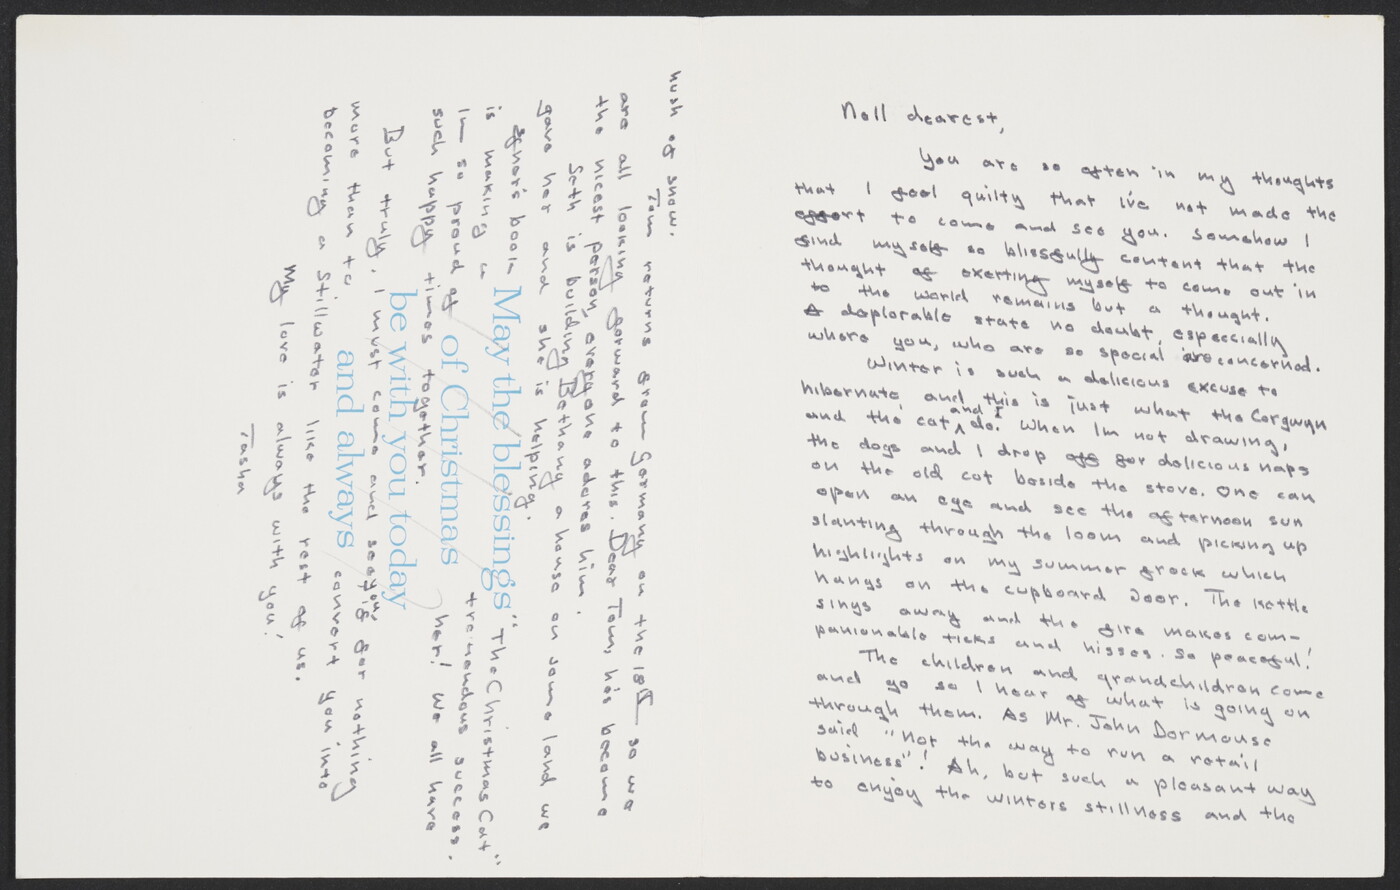 Nell dearest,
You are so often in my thoughts
that I feel guilty that I've not made the
effort to come and see you. Somehow I
find myself so blissfully content that the
thought of exerting myself to come out in
to the world remains but a thought.
A deplorable state no doubt, especially
where you, who are so special are concerned.
Winter is such a delicious excuse to
hibernate and this is just what the Corgwyn
and the cat and I do. When I'm not drawing,
the dogs and I drop off for delicious naps
on the old cot beside the stove. One can
open an eye and see the afternoon sun
slanting through the loom and picking up
highlights on my summer frock which
hangs on the cupboard door. The kettle
sings away and the fire makes com-
panionable ticks and hisses. So peaceful!
The children and grandchildren come
and go so I hear of what is going on
through them. As Mr. John Dormouse
said "Not the way to run a retail
business"! Ah, but such a pleasant way
to enjoy the winters stillness and the
hush of snow.
Tom returns from Germany on the 18th so we
are all looking forward to this. Dear Tom, has become
the nicest person, everyone adores him.
Seth is building Bethany a house on some land we
gave her and she is helping.
book "The Christmas Cat"
is making a tremendous success.
Im so proud of her! We all have
such happy times together.
But truly, I must come and see you, if for nothing
more than to convert you into
becoming a Stillwater like the rest of us.
My love is always with you!
Tasha
May the blessings
of Christmas
be with you today
and always